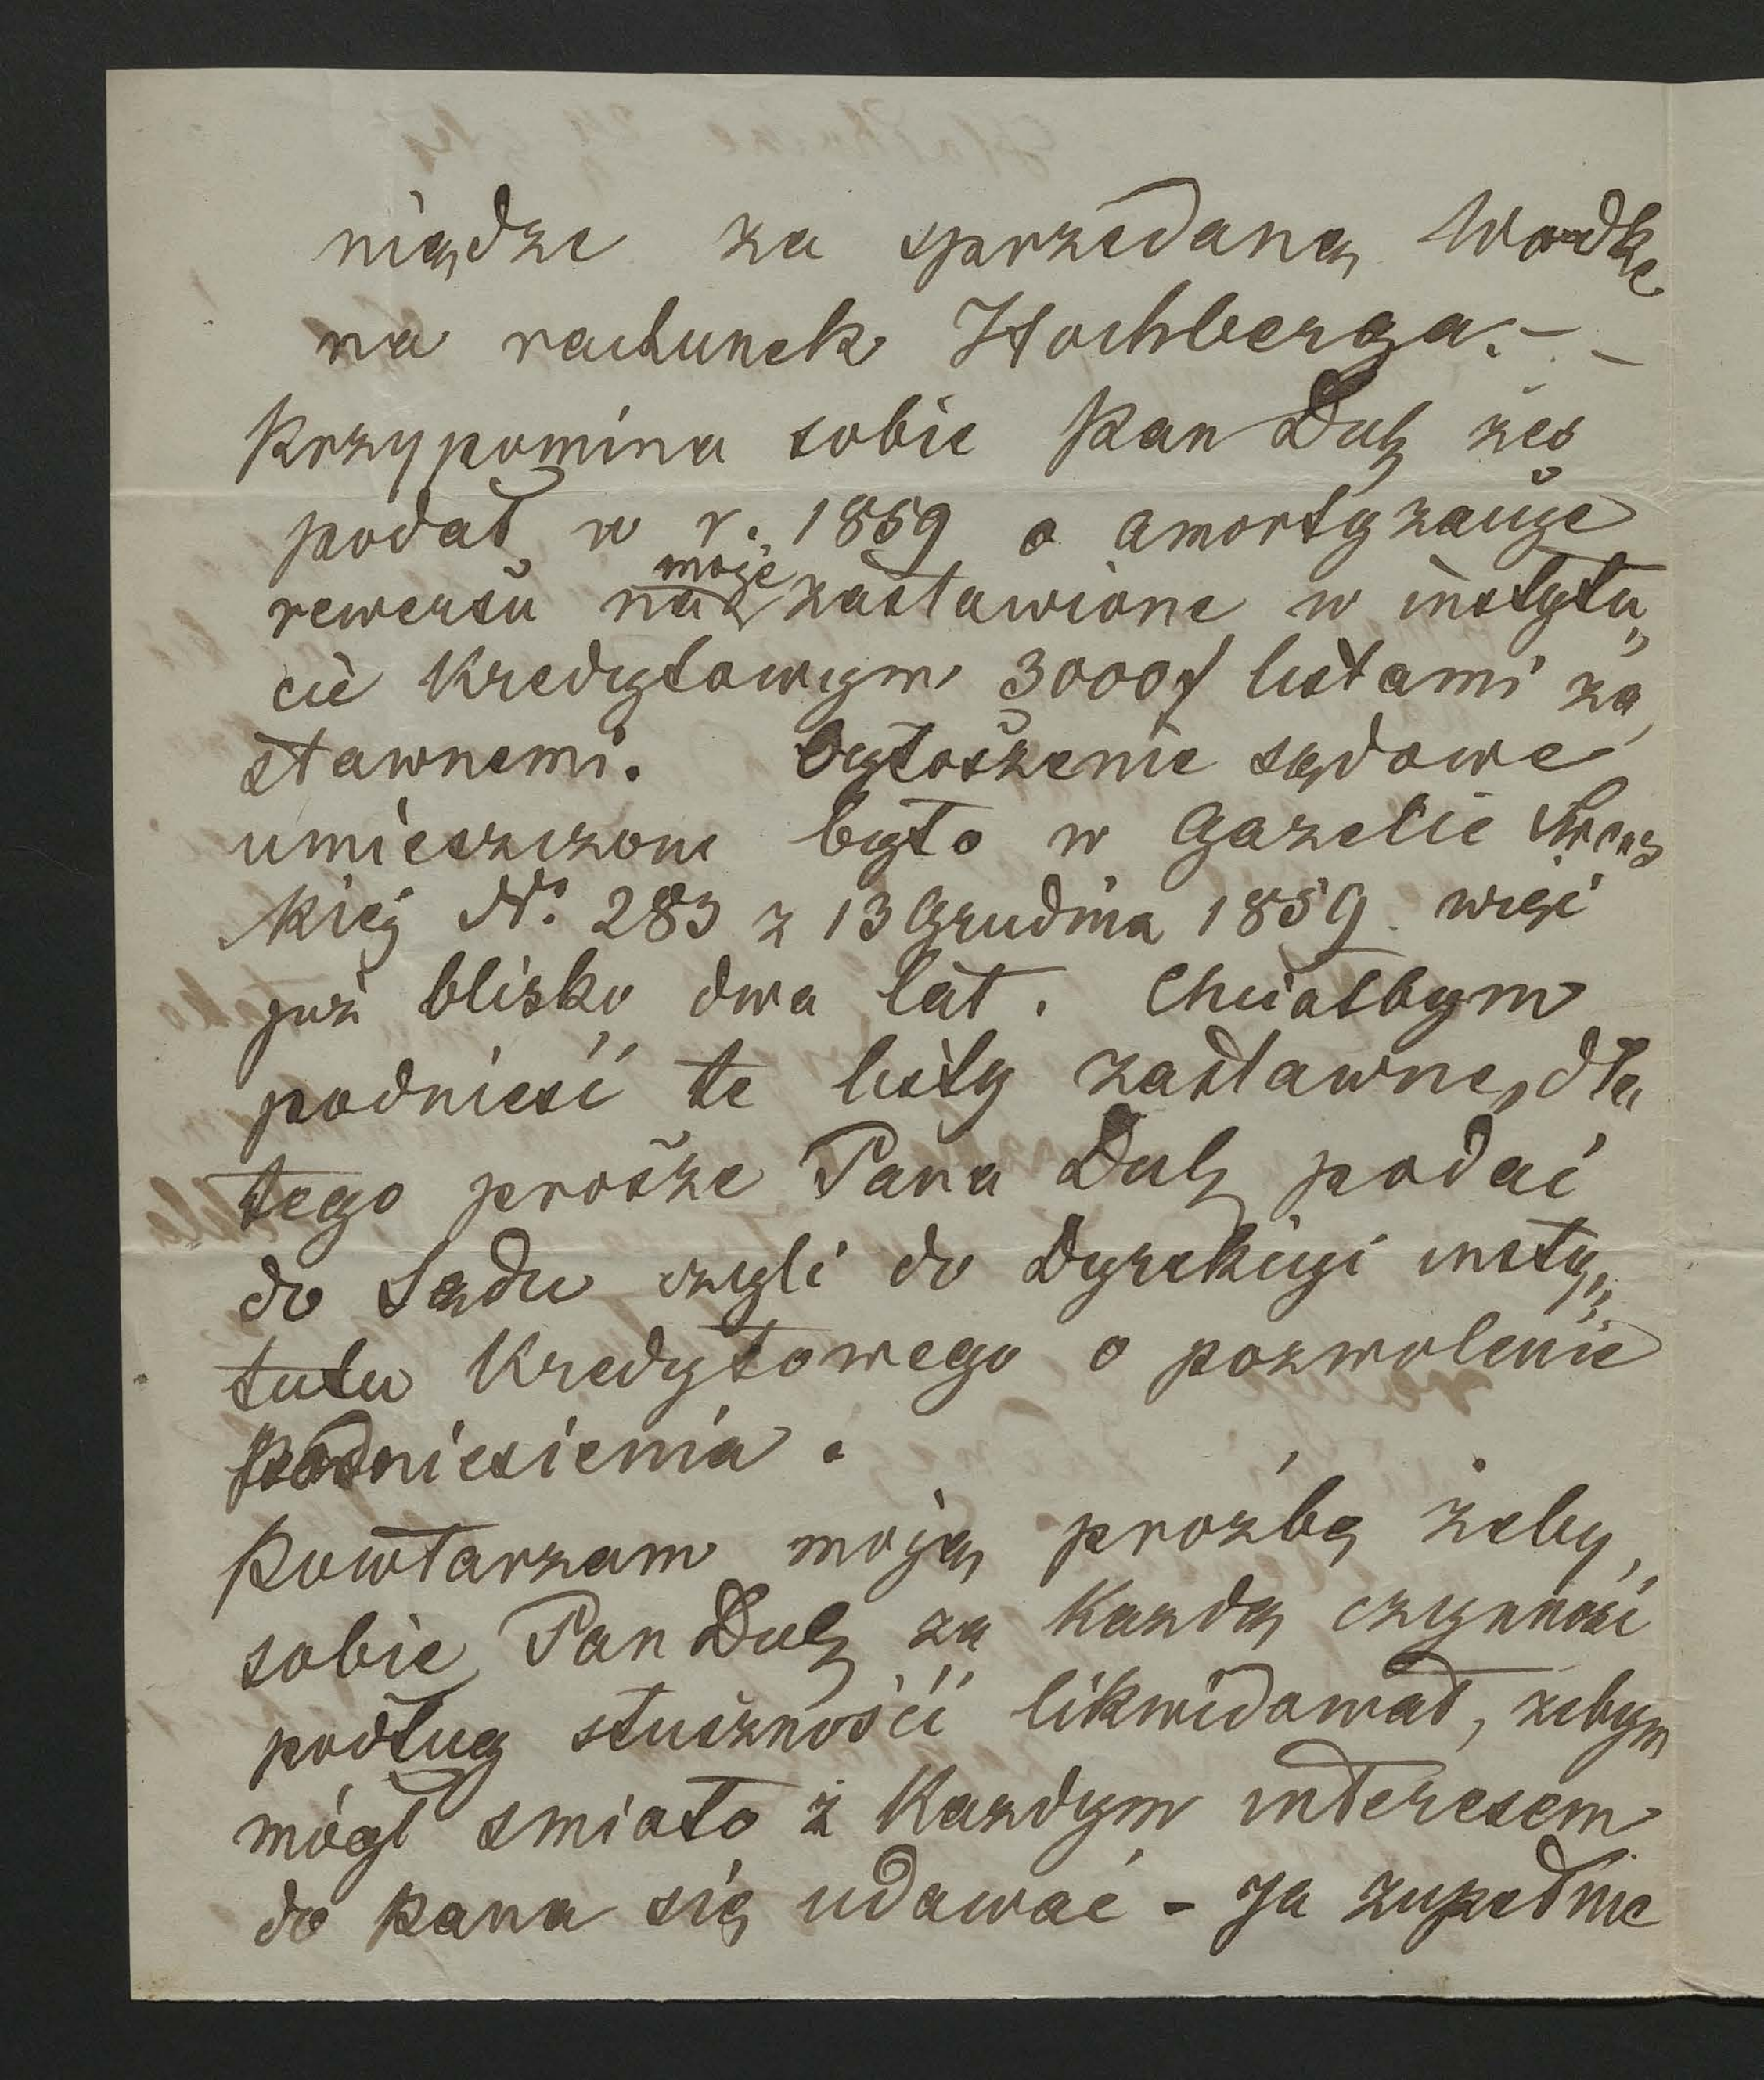 niądze za sprzedaną Wodke
na rachunek Hochberga. – –
Przypomina sobie Pan Dulȩ żes
podał w r. 1859 o amortyzacije
rewersu moje zastawione w instytu„
cie Kredytowym 3000f listami za„
stawnemi. Ogłoszenie sądowe
umieszczone było w Gazecie
Kiéj No. 283 z 13 Grudnia 1859. więc
już blisko dwa lat. Chciałbym
podnieść te listy zastawne, dla
tego prosze Pana Dulȩ podać
do Sądu czyli do Dyrekciyi insty„
tutu Kredytowego o pozwolenie
podniesienia.
Powtarzam moją prożbę żeby
sobie Pan Dulȩ za Każdą czynność
podług słuszności likwidował, żebym
mógł smiało z Kazdym interesem
do Pana się udawać – Ja zupełnie